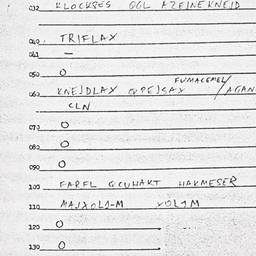 032 KLOCKSES OGL AZEINEKNEID
040 TRIFLAX
041 —
050 O
FUMACEMEL/
060 KNEIDLAX QPEJSAX /AGAN
CLN
070 O
080 O
090 O
100 FARFL GCUHAKT HAKMESER
110 MAJXOLJ-M XOLJM
120 O
130 O